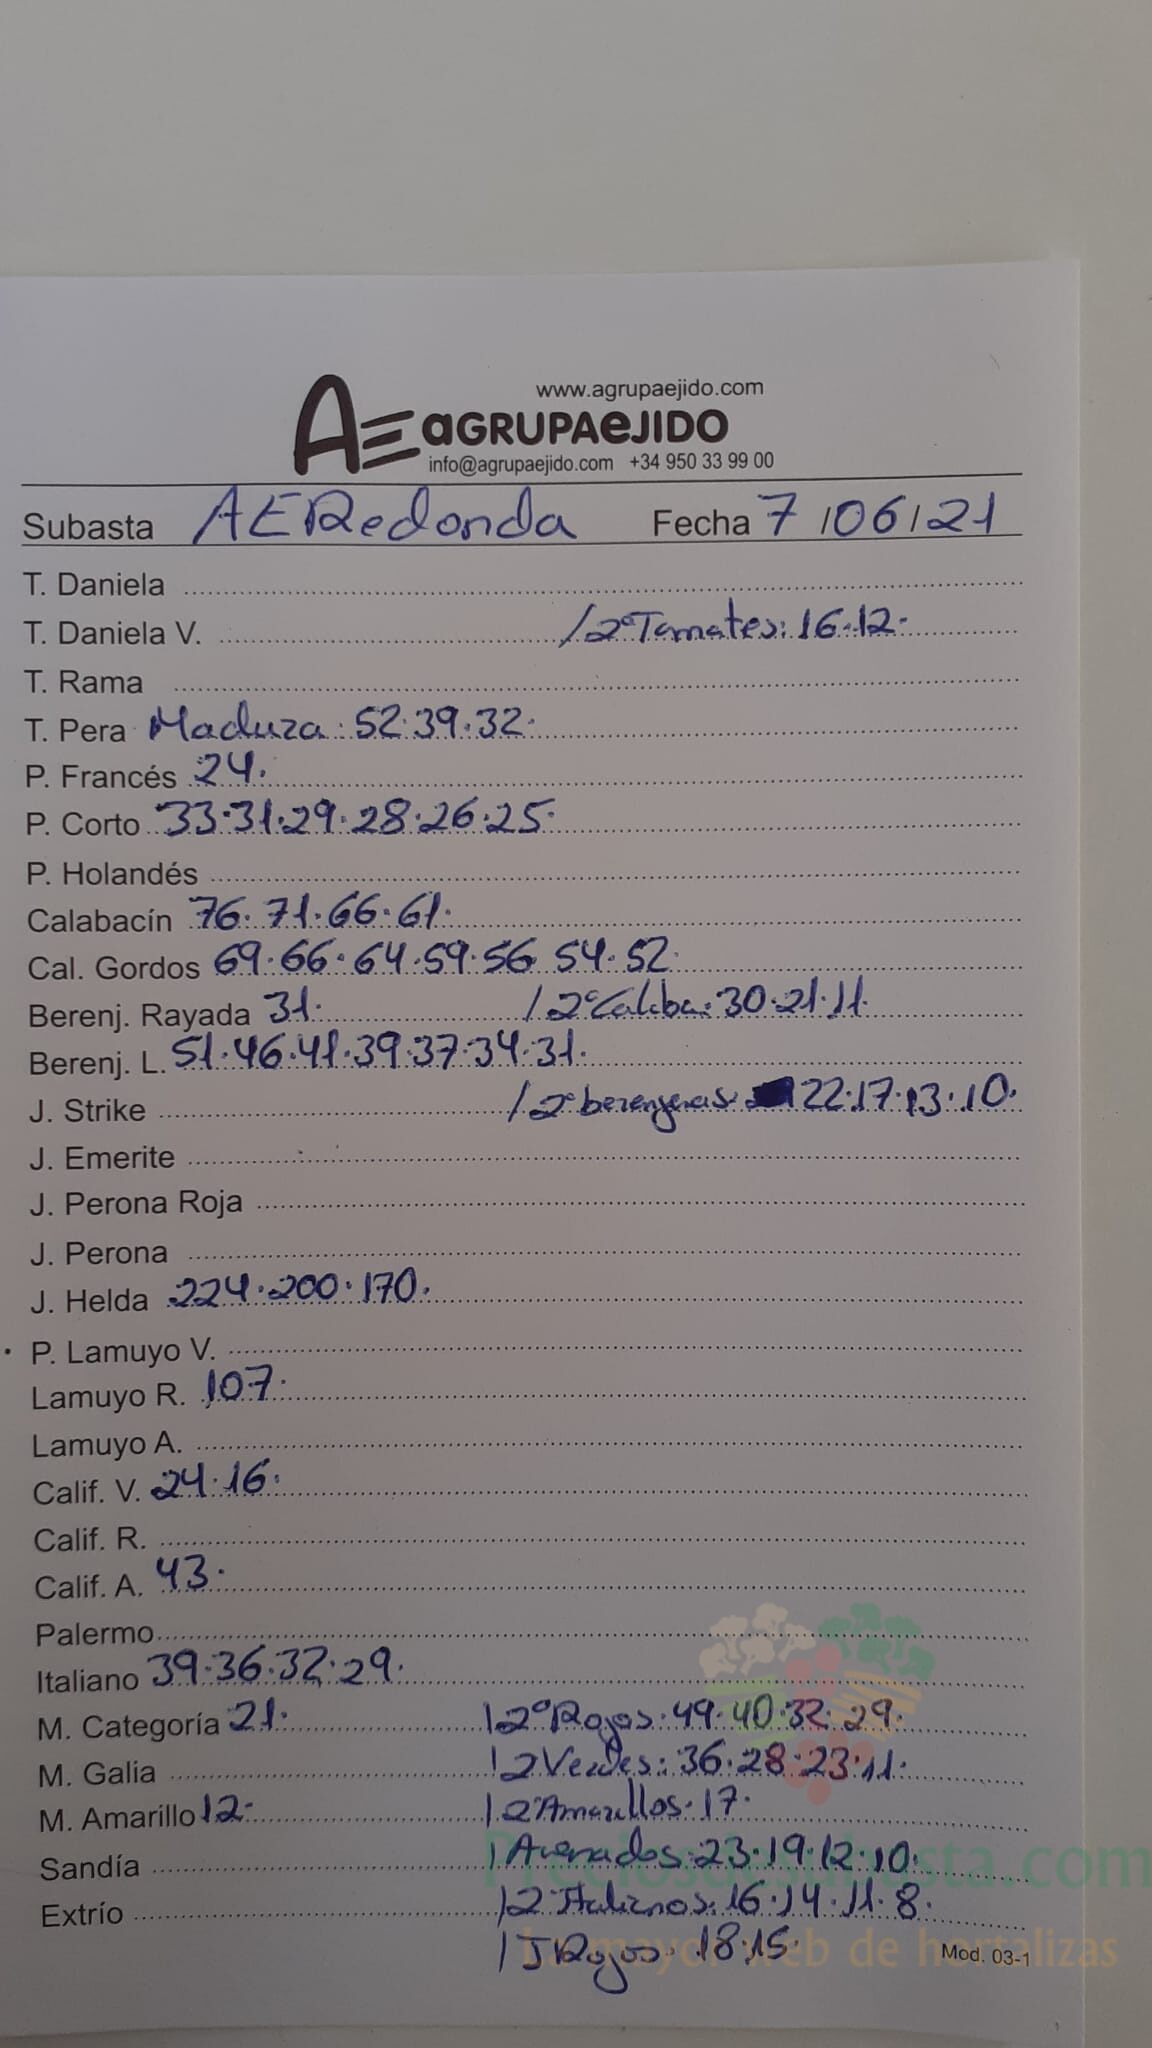 www.agrupaejido.com
AE aGRUPAeJIDO
info@agrupaejido.com +34 950 33 99 00
Subasta AERedonda Fecha 7/06/21
T. Daniela
T. Daniela V. /2ª Tomates: 16.12.
T. Rama
T. Pera Madura: 52.39.32.
P. Francés 24.
P. Corto 33.31.29.28.26.25.
P. Holandés
Calabacín 76.71.66.61.
Cal. Gordos 69.66.64.59.56 54.52.
Berenj. Rayada 31. /2ª Calaba: 30.21.11.
Berenj. L. 51.46.41.39.37.34.31.
J. Strike /2ª berenjenas. 22.17.13.10.
J. Emerite
J. Perona Roja
J. Perona
J. Helda 224.200.170.
P. Lamuyo V.
Lamuyo R. 107.
Lamuyo A.
Calif. V. 24.16.
Calif. R.
Calif. A. 43.
Palermo
Italiano 39.36.32.29.
M. Categoría 21. /2º Rojos: 49.40.32.29.
M. Galia /2 Verdes: 36.28.23.11.
M. Amarillo 12. /2 Amarillos. 17.
Sandía / Asurados: 23.19.12.10.
Extrío /2 Italianos: 16.14.11.8.
/ I Rojos. 18.15.
Mod. 03-1
Preciosdesubasta.com
La mayor web de hortalizas